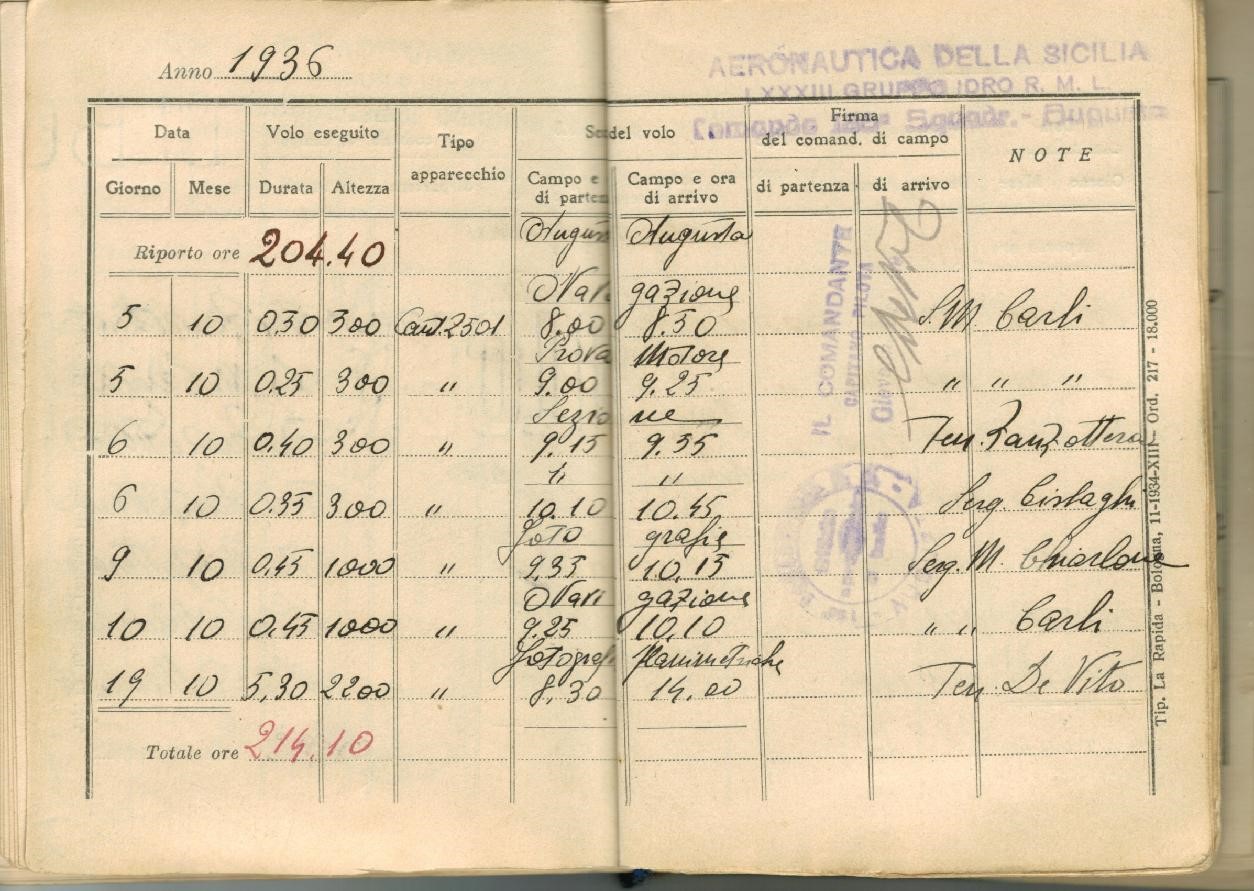 Anno 1936
AERONAUTICA DELLA SICILIA
LXXXIII GRUPPO IDRO R. M. L.
Comando Squadr. - Augusta
Data Volo eseguito Tipo apparecchio del volo Firma del comand. di campo NOTE
Giorno Mese Durata Altezza Campo e di parten Campo e ora di arrivo di partenza di arrivo
Riporto ore 204.40 Augus Augusta
Navi gazione
5 10 0.30 300 Cant.2501 8.00 8.30 S.M Carli
Prova Motore
5 10 0.25 300 " 9.00 9.25 " " "
Sezio ne
6 10 0.40 300 " 9.15 9.55 Ten Zanzottera
" "
6 10 0.35 300 " 10.10 10.45 Serg. Cislaghi
Foto grafie
9 10 0.45 1000 " 9.35 10.15 Serg. M.
Navi gazione
10 10 0.45 1000 " 9.25 10.10 " " Carli
Fotograf Planimetriche
19 10 5.30 2200 " 8.30 14.00 Ten De Vito
Totale ore 214.10
IL COMANDANTE
CAPITANO PILOTA
Tip. La Rapida - Bologna, 11-1934-XIII - Ord. 217 - 18.000